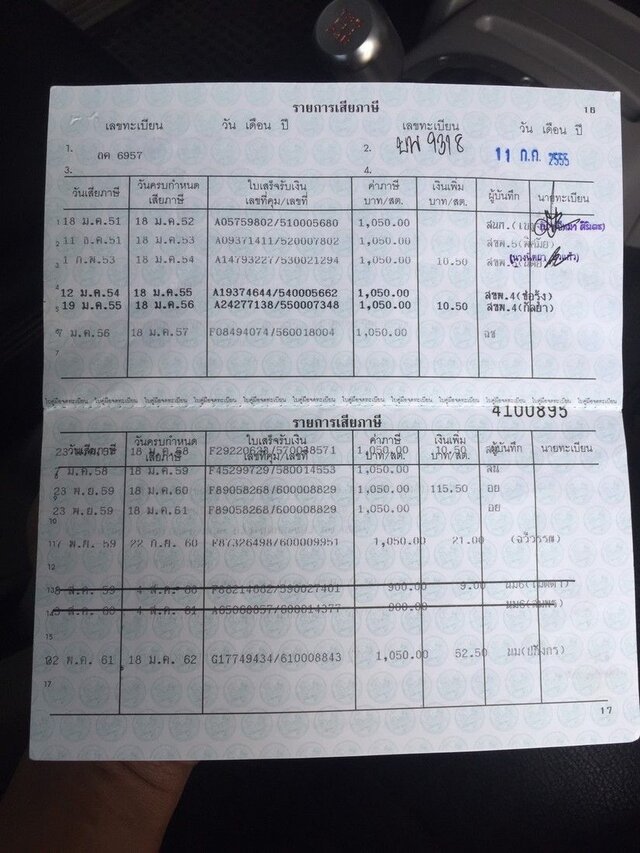 รายการเสียภาษี 16
เลขทะเบียน วัน เดือน ปี เลขทะเบียน วัน เดือน ปี
1. ถค 6957 2. 9318 11 ก.ค. 2555
3. 4.
วันเสียภาษี วันครบกำหนดเสียภาษี ใบเสร็จรับเงิน เลขที่คุม/เลขที่ ค่าภาษี บาท/สต. เงินเพิ่ม บาท/สต. ผู้บันทึก นายทะเบียน
1 18 ม.ค.51 18 ม.ค.52 A05759802/510005680 1,050.00
2 18 ม.ค.53 A09371411/520007802 1,050.00
3 1 ก.พ.53 18 ม.ค.54 A14793227/530021294 1,050.00 10.50
4
12 ม.ค.54 18 ม.ค.55 A19374644/540005662 1,050.00 สขพ.4
5 19 ม.ค.55 18 ม.ค.56 A24277138/550007348 1,050.00 10.50 สขพ.4
ม.ค.56 18 ม.ค.57 F08494074/560018004 1,050.00 ฉช
7
ใบคู่มือจดทะเบียน ใบคู่มือจดทะเบียน ใบคู่มือจดทะเบียน ใบคู่มือจดทะเบียน
4100895
รายการเสียภาษี
วันเสียภาษี วันครบกำหนดเสียภาษี ใบเสร็จรับเงิน เลขที่คุม/เลขที่ ค่าภาษี บาท/สต. เงินเพิ่ม บาท/สต. ผู้บันทึก นายทะเบียน
18 ม.ค.58 1,050.00 10.50
ม.ค.58 18 ม.ค.59 F45299729/580014553 1,050.00 สน
23 พ.ย.59 18 ม.ค.60 F89058268/600008829 1,050.00 115.50 อย
23 พ.ย.59 18 ม.ค.61 F89058268/600008829 1,050.00 อย
10
17 พ.ย. 59 22 ก.ย. 60 F87326498/600009951 1,050.00 21.00 (ฉวีวรรณ)
12
13 4 ส.ค. 60 900.00 9.00
14 4 ส.ค. 61 900.00
15
22 พ.ค. 61 18 ม.ค. 62 G17749434/610008843 1,050.00 52.50
17
17